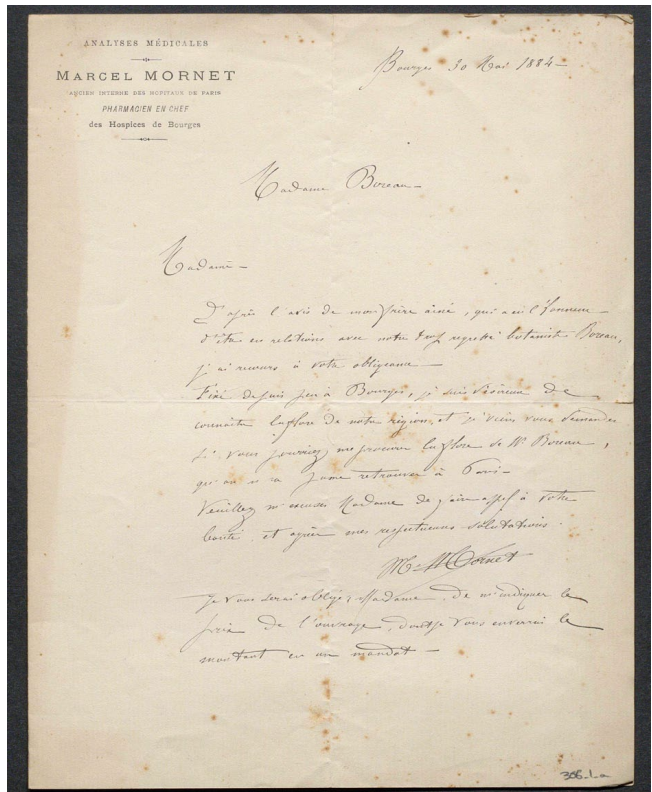 ANALYSES MÉDICALES
MARCEL MORNET
ANCIEN INTERNE DES HOPITAUX DE PARIS
PHARMACIEN EN CHEF
des Hospices de Bourges
Bourges 30 Mai 1884
Madame Boreau
Madame
D'après l'avis de mon frère ainé, qui a eu l'honneur
d'être en relations avec notre trop regretté botaniste Boreau,
j'ai recours à votre obligeance
Fixé depuis peu à Bourges, je suis désireux de
connaître la flore de notre région, et je viens vous demander
si vous pourriez me procurer la flore de Mr Boreau,
qu'on n'a pu me retrouver à Paris
Veuillez m'excuser Madame de faire appel à votre
bonté et agréer mes respectueuses salutations.
M. Mornet
Je vous serai obligé, Madame, de m'indiquer le
prix de l'ouvrage, dont je vous enverrai le
montant en un mandat
306-1-a